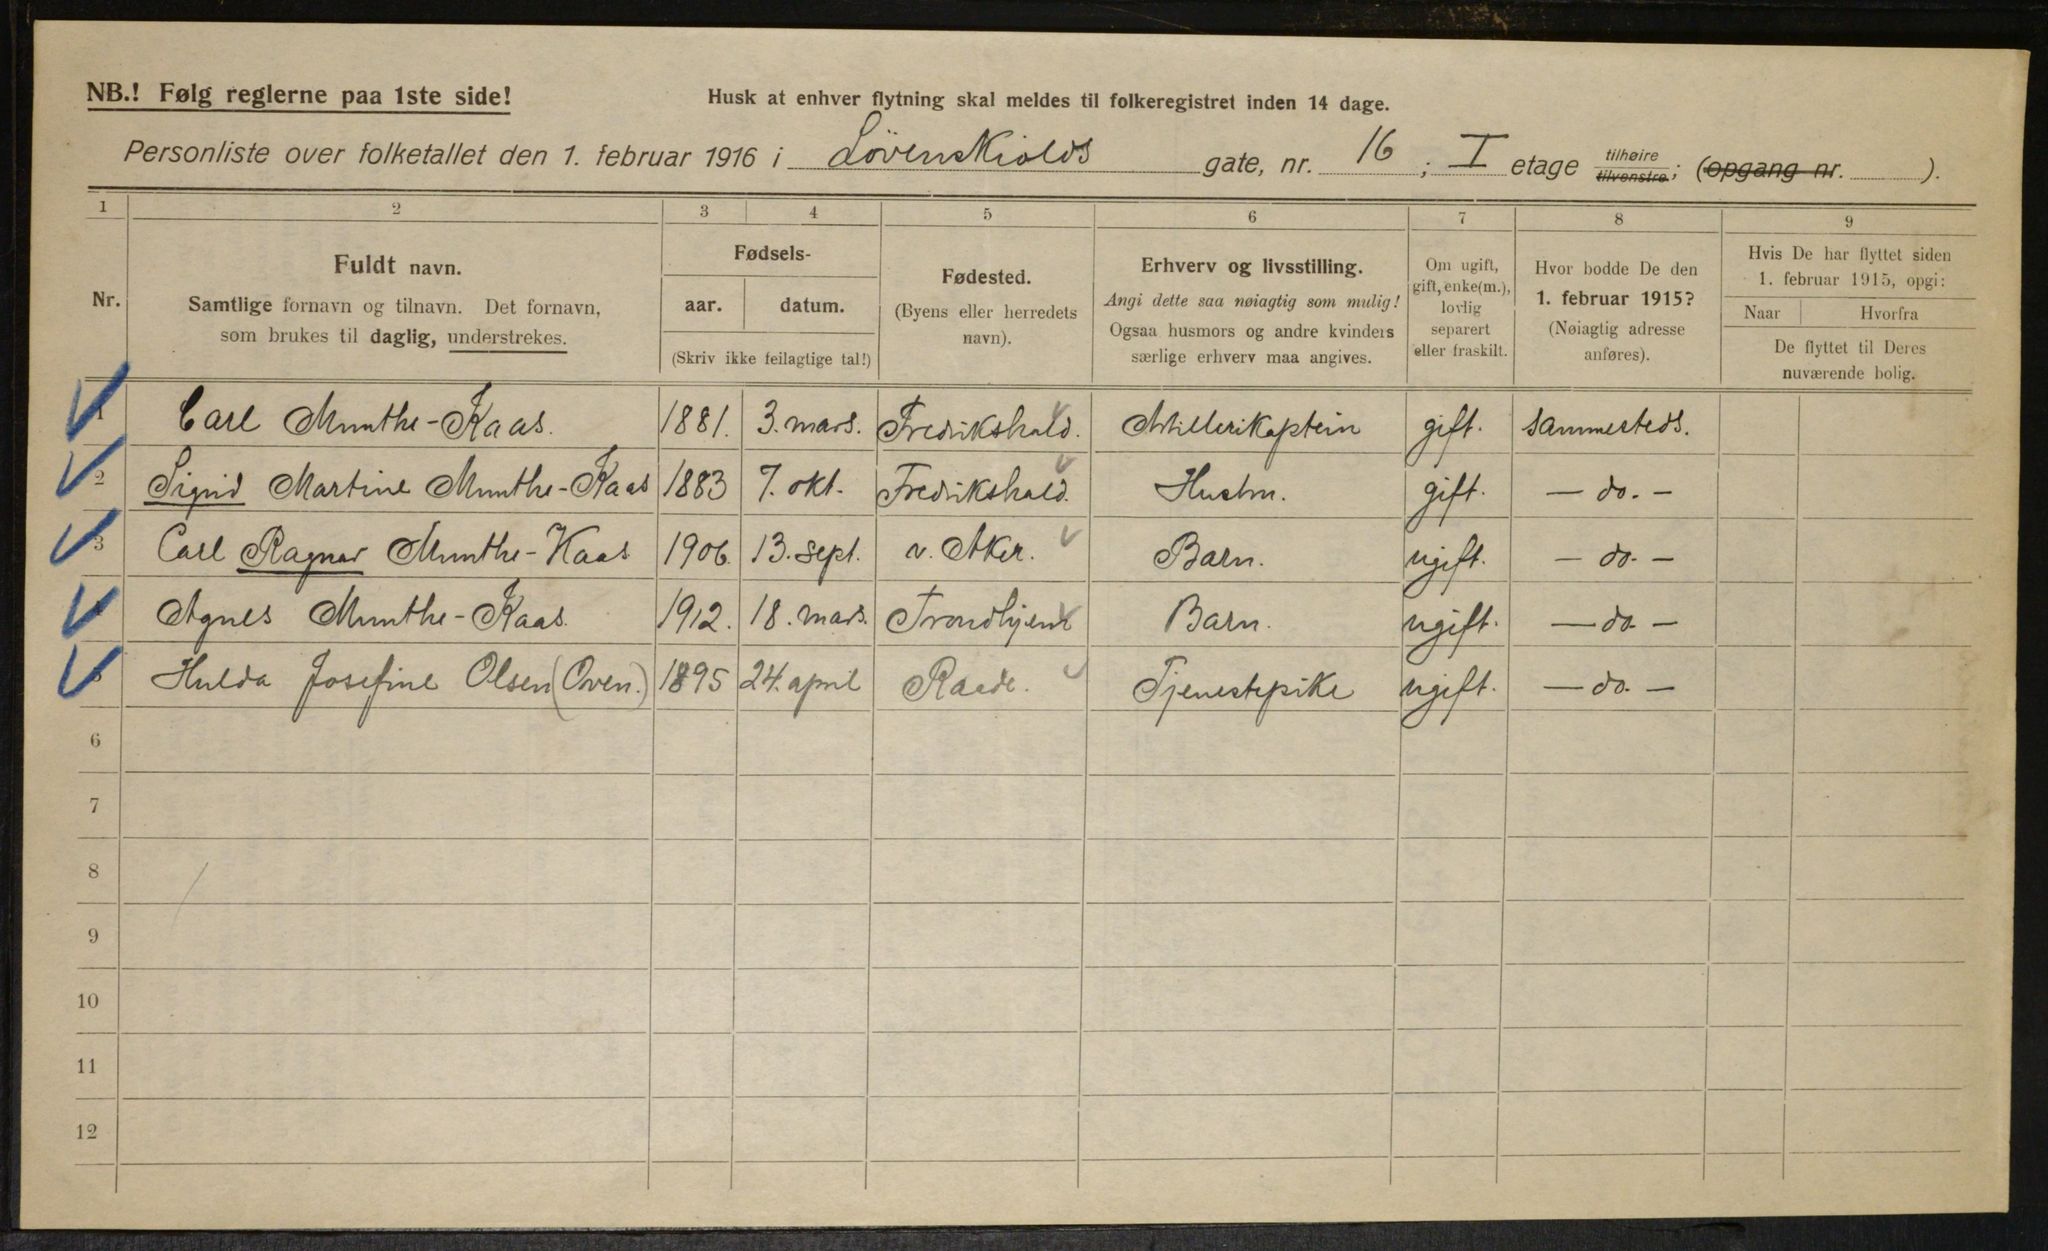 NB.! Følg reglerne paa 1ste side!
Husk at enhver flytning skal meldes til folkeregistret inden 14 dage.
Personliste over folketallet den 1. februar 1916 i Løvenskiolds gate, nr. 16 ; I etage tilhøire tilvenstre; (opgang nr. ).
1 2 3 4 5 6 7 8 9
Nr.
Fuldt navn.
Samtlige fornavn og tilnavn. Det fornavn,
som brukes til daglig, understrekes.
Fødsels-
aar. datum.
(Skriv ikke feilagtige tal!)
Fødested.
(Byens eller herredets
navn).
Erhverv og livsstilling.
Angi dette saa nøiagtig som mulig!
Ogsaa husmors og andre kvinders
særlige erhverv maa angives.
Om ugift,
gift, enke(m.),
lovlig
separert
eller fraskilt.
Hvor bodde De den
1. februar 1915?
(Nøiagtig adresse
anføres).
Hvis De har flyttet siden
1. februar 1915, opgi:
Naar Hvorfra
De flyttet til Deres
nuværende bolig.
1 Carl Munthe-Kaas. 1881. 3. mars. Fredrikshald. Artillerikaptein gift. sammesteds.
2 Sigrid Martine Munthe-Kaas 1883 7. okt. Fredrikshald. Hustru. gift. — do. —
3 Carl Ragnar Munthe-Kaas 1906. 13. sept. v. Aker. Barn. ugift. — do. —
4 Agnes Munthe-Kaas. 1912. 18. mars. Trondhjem Barn. ugift. — do. —
5 Hulda Josefine Olsen (Oven.) 1895 24. april Raade. Tjenestepike ugift. — do. —
6
7
8
9
10
11
12